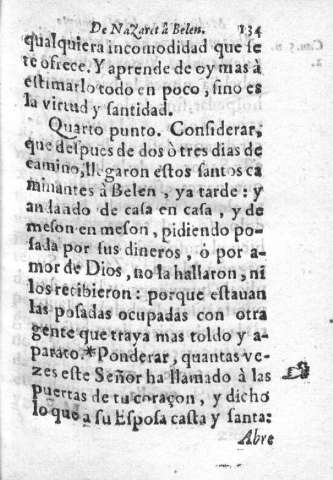 De Nazaret à Belen. 134
qualquiera incomodidad que se
te ofrece. Y aprende de oy mas à
estimarlo todo en poco, sino es
la virtud y santidad.
Quarto punto. Considerar,
que despues de dos ò tres dias de
camino, llegaron estos santos ca
minantes à Belen, ya tarde: y
andando de casa en casa, y de
meson en meson, pidiendo po-
sada por sus dineros, ò por a-
mor de Dios, no la hallaron, ni
los recibieron: porque estauan
las posadas ocupadas con otra
gente que traya mas toldo y a-
parato.*Ponderar, quantas ve-
zes este Señor ha llamado à las
puertas de tu coraçon, y dicho
lo que a su Esposa casta y santa:
Abre